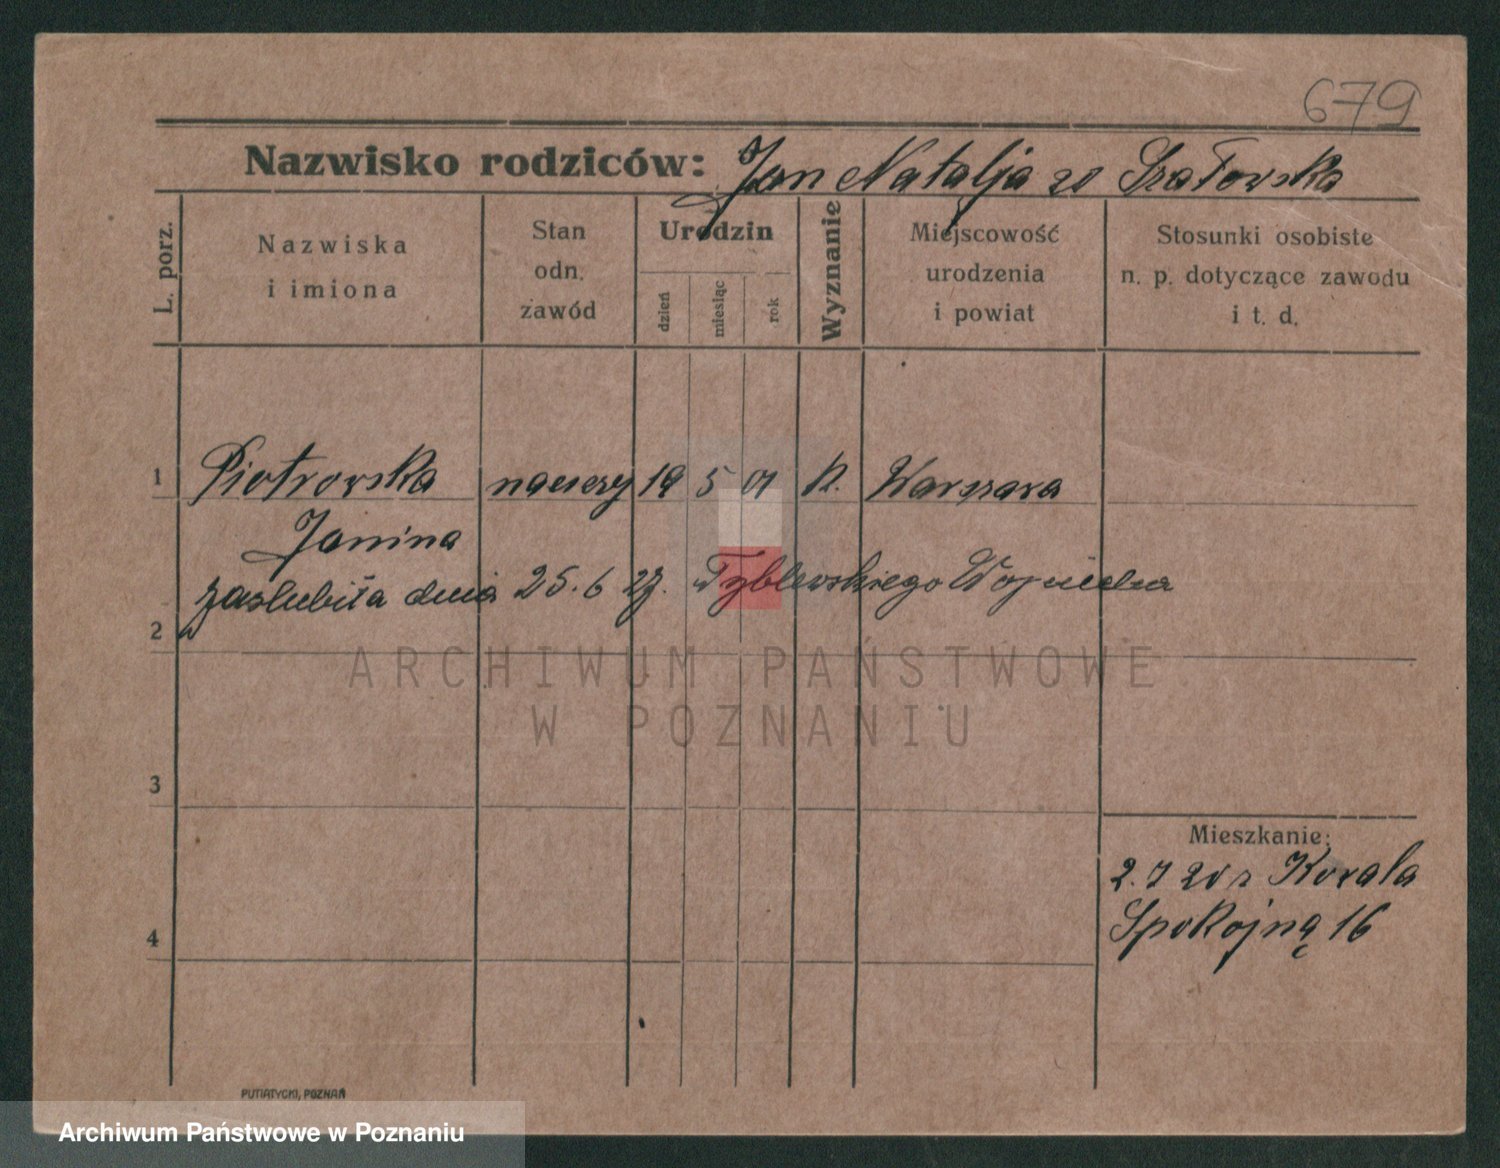 679
Nazwisko rodziców: Jan Natalja ze Szałowska
L. porz.
Nazwiska i imiona
Stan odn. zawód
Urodzin
dzień
miesiąc
rok
Wyznanie
Miejscowość urodzenia i powiat
Stosunki osobiste n. p. dotyczące zawodu i t. d.
1 Piotrowska 19 5 01 k. Warszawa
Janina
zaslubiła dnia 25.6 27. Tyblewskiego Wojciecha
2
ARCHIWUM PAŃSTWOWE
W POZNANIU
3
Mieszkanie:
Kowala
4
Spokojną 16
PUTIATYCKI, POZNAŃ
Archiwum Państwowe w Poznaniu